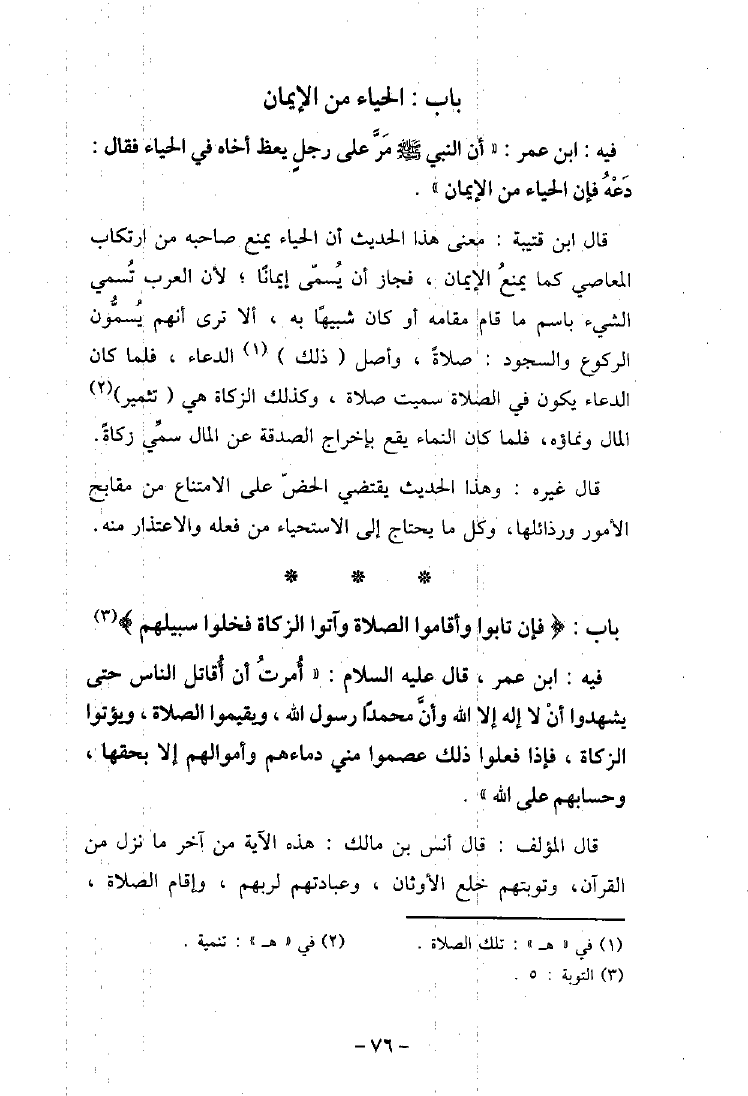 باب : الحياء من الإيمان
فيه : ابن عمر : « أن النبي ﷺ مَرَّ على رجلٍ يعظ أخاه في الحياء فقال :
دَعْهُ فإن الحياء من الإيمان » .
قال ابن قتيبة : معنى هذا الحديث أن الحياء يمنع صاحبه من ارتكاب
المعاصي كما يمنعُ الإيمان ، فجاز أن يُسمّى إيمانًا ؛ لأن العرب تُسمي
الشيء باسم ما قام مقامه أو كان شبيهًا به ، ألا ترى أنهم يُسمُّون
الركوع والسجود : صلاةً ، وأصل ( ذلك ) (١) الدعاء ، فلما كان
الدعاء يكون في الصلاة سميت صلاة ، وكذلك الزكاة هي ( تثمير)(٢)
المال ونماؤه، فلما كان النماء يقع بإخراج الصدقة عن المال سمِّي زكاةً.
قال غيره : وهذا الحديث يقتضي الحضّ على الامتناع من مقابح
الأمور ورذائلها، وكل ما يحتاج إلى الاستحياء من فعله والاعتذار منه.
* * *
باب : ﴿ فإن تابوا وأقاموا الصلاة وآتوا الزكاة فخلوا سبيلهم ﴾(٣)
فيه : ابن عمر ، قال عليه السلام : « أُمرتُ أن أُقاتل الناس حتى
يشهدوا أنْ لا إله إلا الله وأنَّ محمدًا رسول الله ، ويقيموا الصلاة ، ويؤتوا
الزكاة ، فإذا فعلوا ذلك عصموا مني دماءهم وأموالهم إلا بحقها ،
وحسابهم على الله » .
قال المؤلف : قال أنس بن مالك : هذه الآية من آخر ما نزل من
القرآن، وتوبتهم خلع الأوثان ، وعبادتهم لربهم ، وإقام الصلاة ،
(١) في « هـ » : تلك الصلاة . (٢) في « هـ » : تنمية .
(٣) التوبة : ٥ .
– ٧٦ –